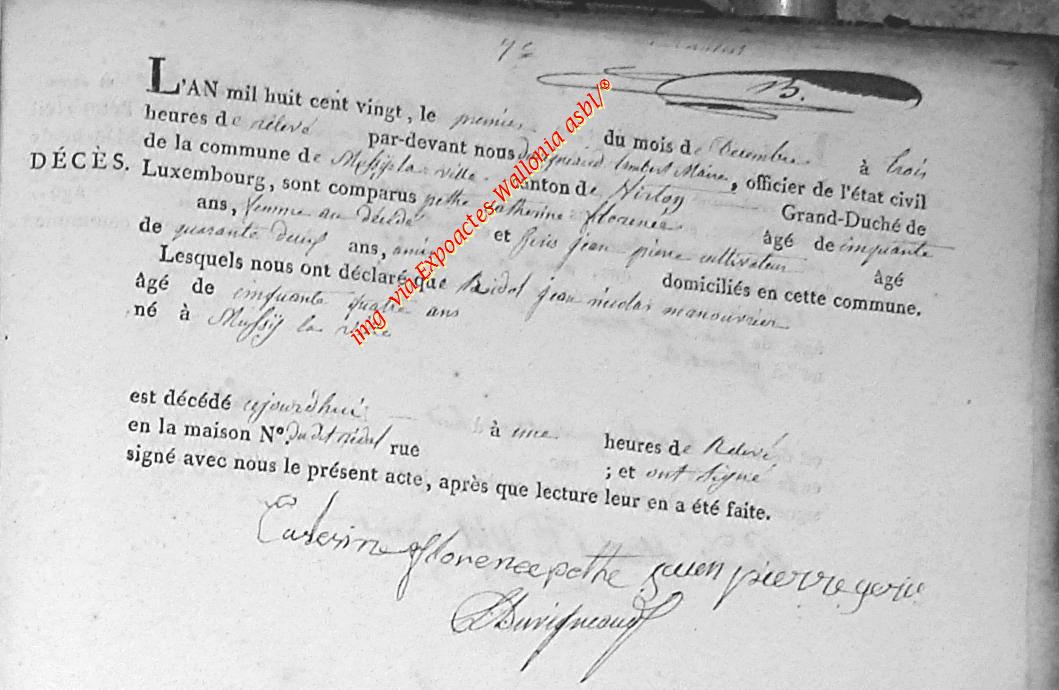 75
13.
L'AN mil huit cent vingt, le premier du mois de Decembre à trois
heures de relevé par-devant nous Duvigneaud Lambert Maire, officier de l'état civil
de la commune de Mussij la ville canton de Virton Grand-Duché de
DÉCÈS. Luxembourg, sont comparus pethe Catherine florence âgé de cinquante
ans, femme au décédé et jean pierre cultivateur âgé
de quarante ans, domiciliés en cette commune.
Lesquels nous ont déclaré que jean nicolas manouvrier
âgé de cinquante quatre ans
né à Mussij la ville
est décédé ajourd'hui à une heures de Relevé
en la maison N°. du dit rue ; et ont signé
signé avec nous le présent acte, après que lecture leur en a été faite.
florence pethe pierre
Duvigneaud
img via Expoactes-Wallonia asbl/®